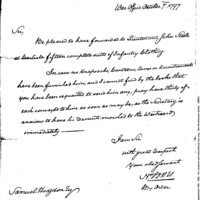 War Office October 5th 1797
Sir,
Be pleased to have forwarded to Lieutenant John Steele
at Carlisle fifteen complete suits of Infantry Clothing.
In case no Knapsacks, Canteens, Arms or Accoutrements
have been furnished him, and I cannot find by the books that
you have been requested to send him any; pray have thirty of
each conveyed to him as soon as may be, as the Secretary is
anxious to have his recruits marched to the Westward
immediately
I am Sir
with great respect
Your obd Servant
Samuel Hodgdon Esq